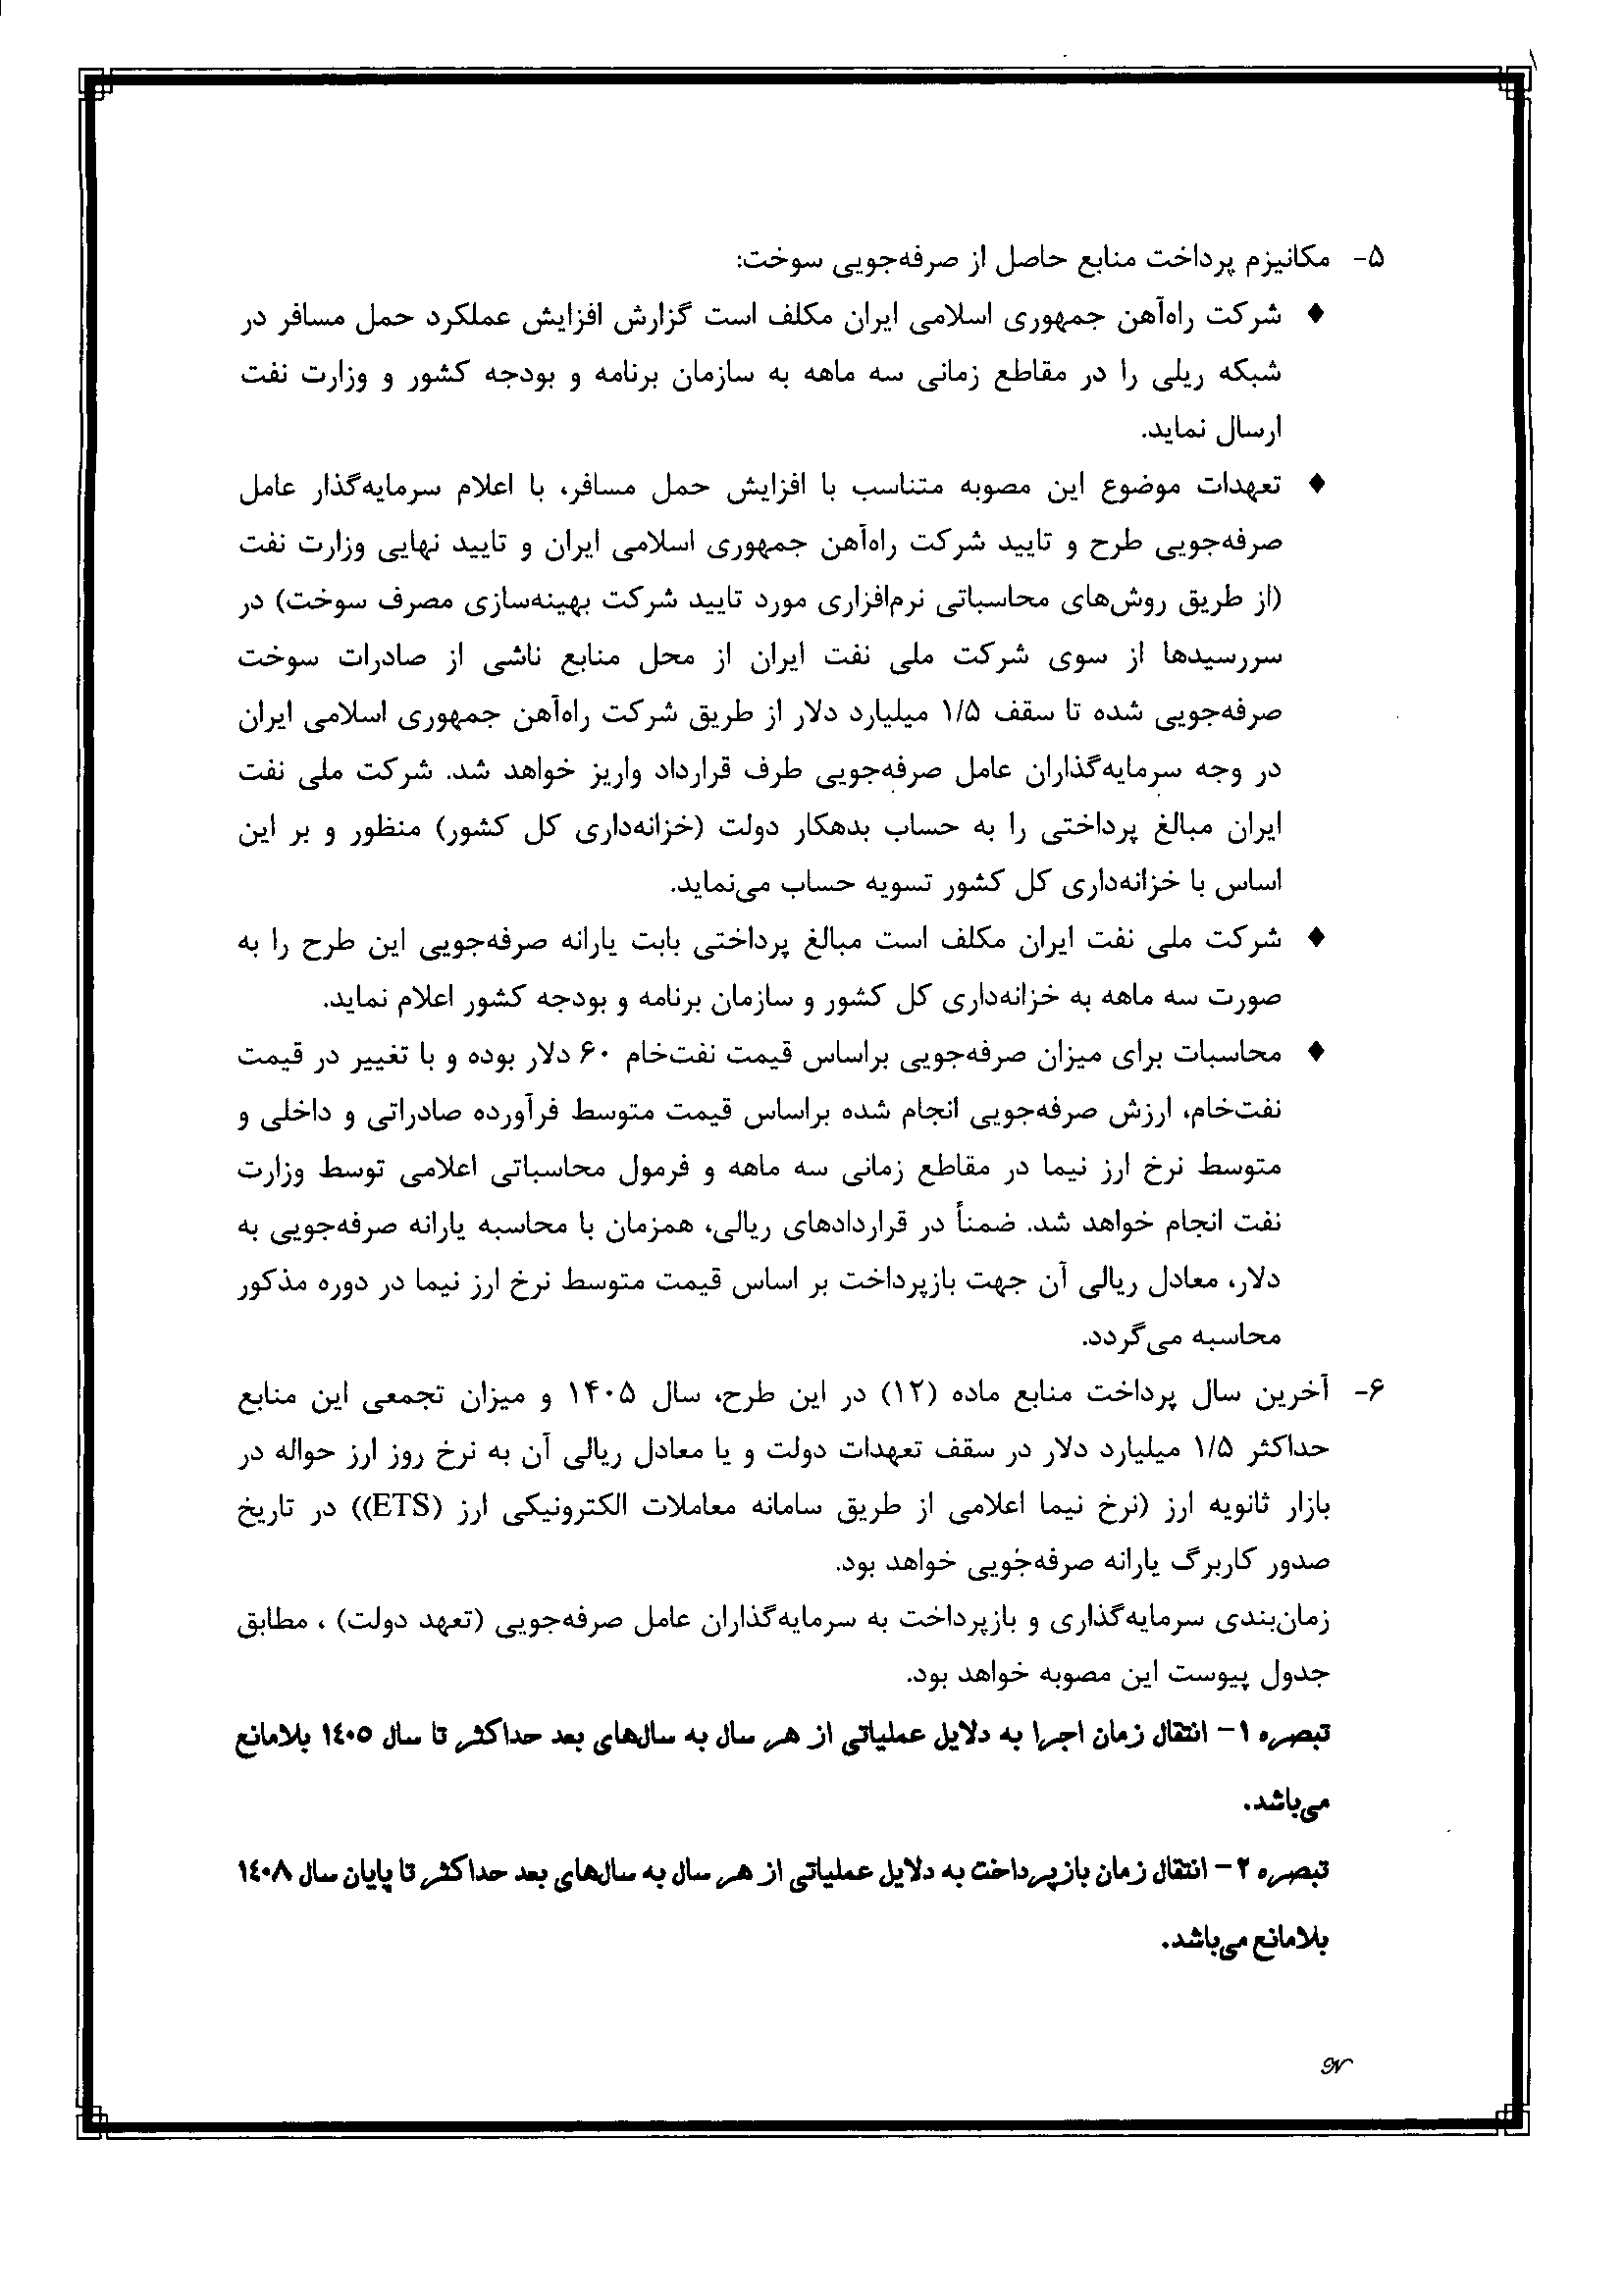 ۵- مکانیزم پرداخت منابع حاصل از صرفه‌جویی سوخت:
♦ شرکت راه‌آهن جمهوری اسلامی ایران مکلف است گزارش افزایش عملکرد حمل مسافر در
شبکه ریلی را در مقاطع زمانی سه ماهه به سازمان برنامه و بودجه کشور و وزارت نفت
ارسال نماید.
♦ تعهدات موضوع این مصوبه متناسب با افزایش حمل مسافر، با اعلام سرمایه‌گذار عامل
صرفه‌جویی طرح و تایید شرکت راه‌آهن جمهوری اسلامی ایران و تایید نهایی وزارت نفت
(از طریق روش‌های محاسباتی نرم‌افزاری مورد تایید شرکت بهینه‌سازی مصرف سوخت) در
سررسیدها از سوی شرکت ملی نفت ایران از محل منابع ناشی از صادرات سوخت
صرفه‌جویی شده تا سقف ۱/۵ میلیارد دلار از طریق شرکت راه‌آهن جمهوری اسلامی ایران
در وجه سرمایه‌گذاران عامل صرفه‌جویی طرف قرارداد واریز خواهد شد. شرکت ملی نفت
ایران مبالغ پرداختی را به حساب بدهکار دولت (خزانه‌داری کل کشور) منظور و بر این
اساس با خزانه‌داری کل کشور تسویه حساب می‌نماید.
♦ شرکت ملی نفت ایران مکلف است مبالغ پرداختی بابت یارانه صرفه‌جویی این طرح را به
صورت سه ماهه به خزانه‌داری کل کشور و سازمان برنامه و بودجه کشور اعلام نماید.
♦ محاسبات برای میزان صرفه‌جویی براساس قیمت نفت‌خام ۶۰ دلار بوده و با تغییر در قیمت
نفت‌خام، ارزش صرفه‌جویی انجام شده براساس قیمت متوسط فرآورده صادراتی و داخلی و
متوسط نرخ ارز نیما در مقاطع زمانی سه ماهه و فرمول محاسباتی اعلامی توسط وزارت
نفت انجام خواهد شد. ضمناً در قراردادهای ریالی، همزمان با محاسبه یارانه صرفه‌جویی به
دلار، معادل ریالی آن جهت بازپرداخت بر اساس قیمت متوسط نرخ ارز نیما در دوره مذکور
محاسبه می‌گردد.
۶- آخرین سال پرداخت منابع ماده (۱۲) در این طرح، سال ۱۴۰۵ و میزان تجمعی این منابع
حداکثر ۱/۵ میلیارد دلار در سقف تعهدات دولت و یا معادل ریالی آن به نرخ روز ارز حواله در
بازار ثانویه ارز (نرخ نیما اعلامی از طریق سامانه معاملات الکترونیکی ارز (ETS)) در تاریخ
صدور کاربرگ یارانه صرفه‌جویی خواهد بود.
زمان‌بندی سرمایه‌گذاری و بازپرداخت به سرمایه‌گذاران عامل صرفه‌جویی (تعهد دولت) ، مطابق
جدول پیوست این مصوبه خواهد بود.
تبصره ۱- انتقال زمان اجرا به دلایل عملیاتی از هر سال به سال‌های بعد حداکثر تا سال ۱٤۰۵ بلامانع
می‌باشد.
تبصره ۲- انتقال زمان بازپرداخت به دلایل عملیاتی از هر سال به سال‌های بعد حداکثر تا پایان سال ۱٤۰۸
بلامانع می‌باشد.